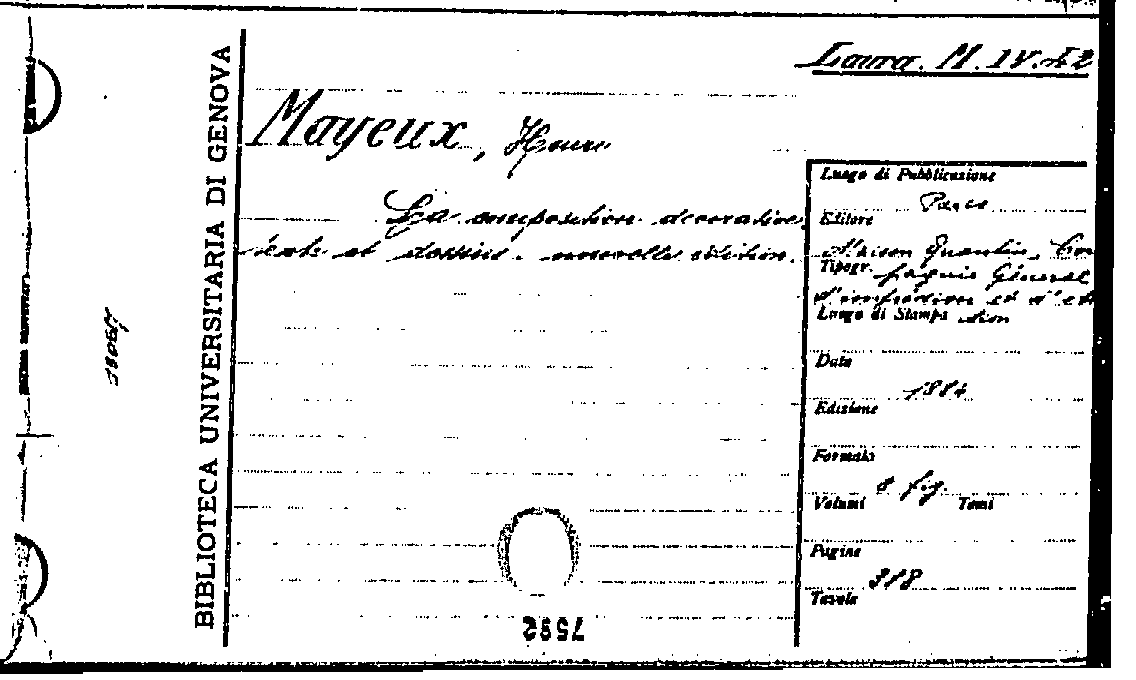 Laura. M. IV. 42
BIBLIOTECA UNIVERSITARIA DI GENOVA
Mayeux, Henri
La composition décorative
texte et dessins. nouvelle édition.
Luogo di Pubblicazione
Paris
Editore
Maison Quantin, Com
Tipogr. pagnie Général
d'impression et d'édi
Luogo di Stampa tion
Data
1884
Edizione
Formato
8 fig.
Volumi Tomi
Pagine
318
Tavole
7592